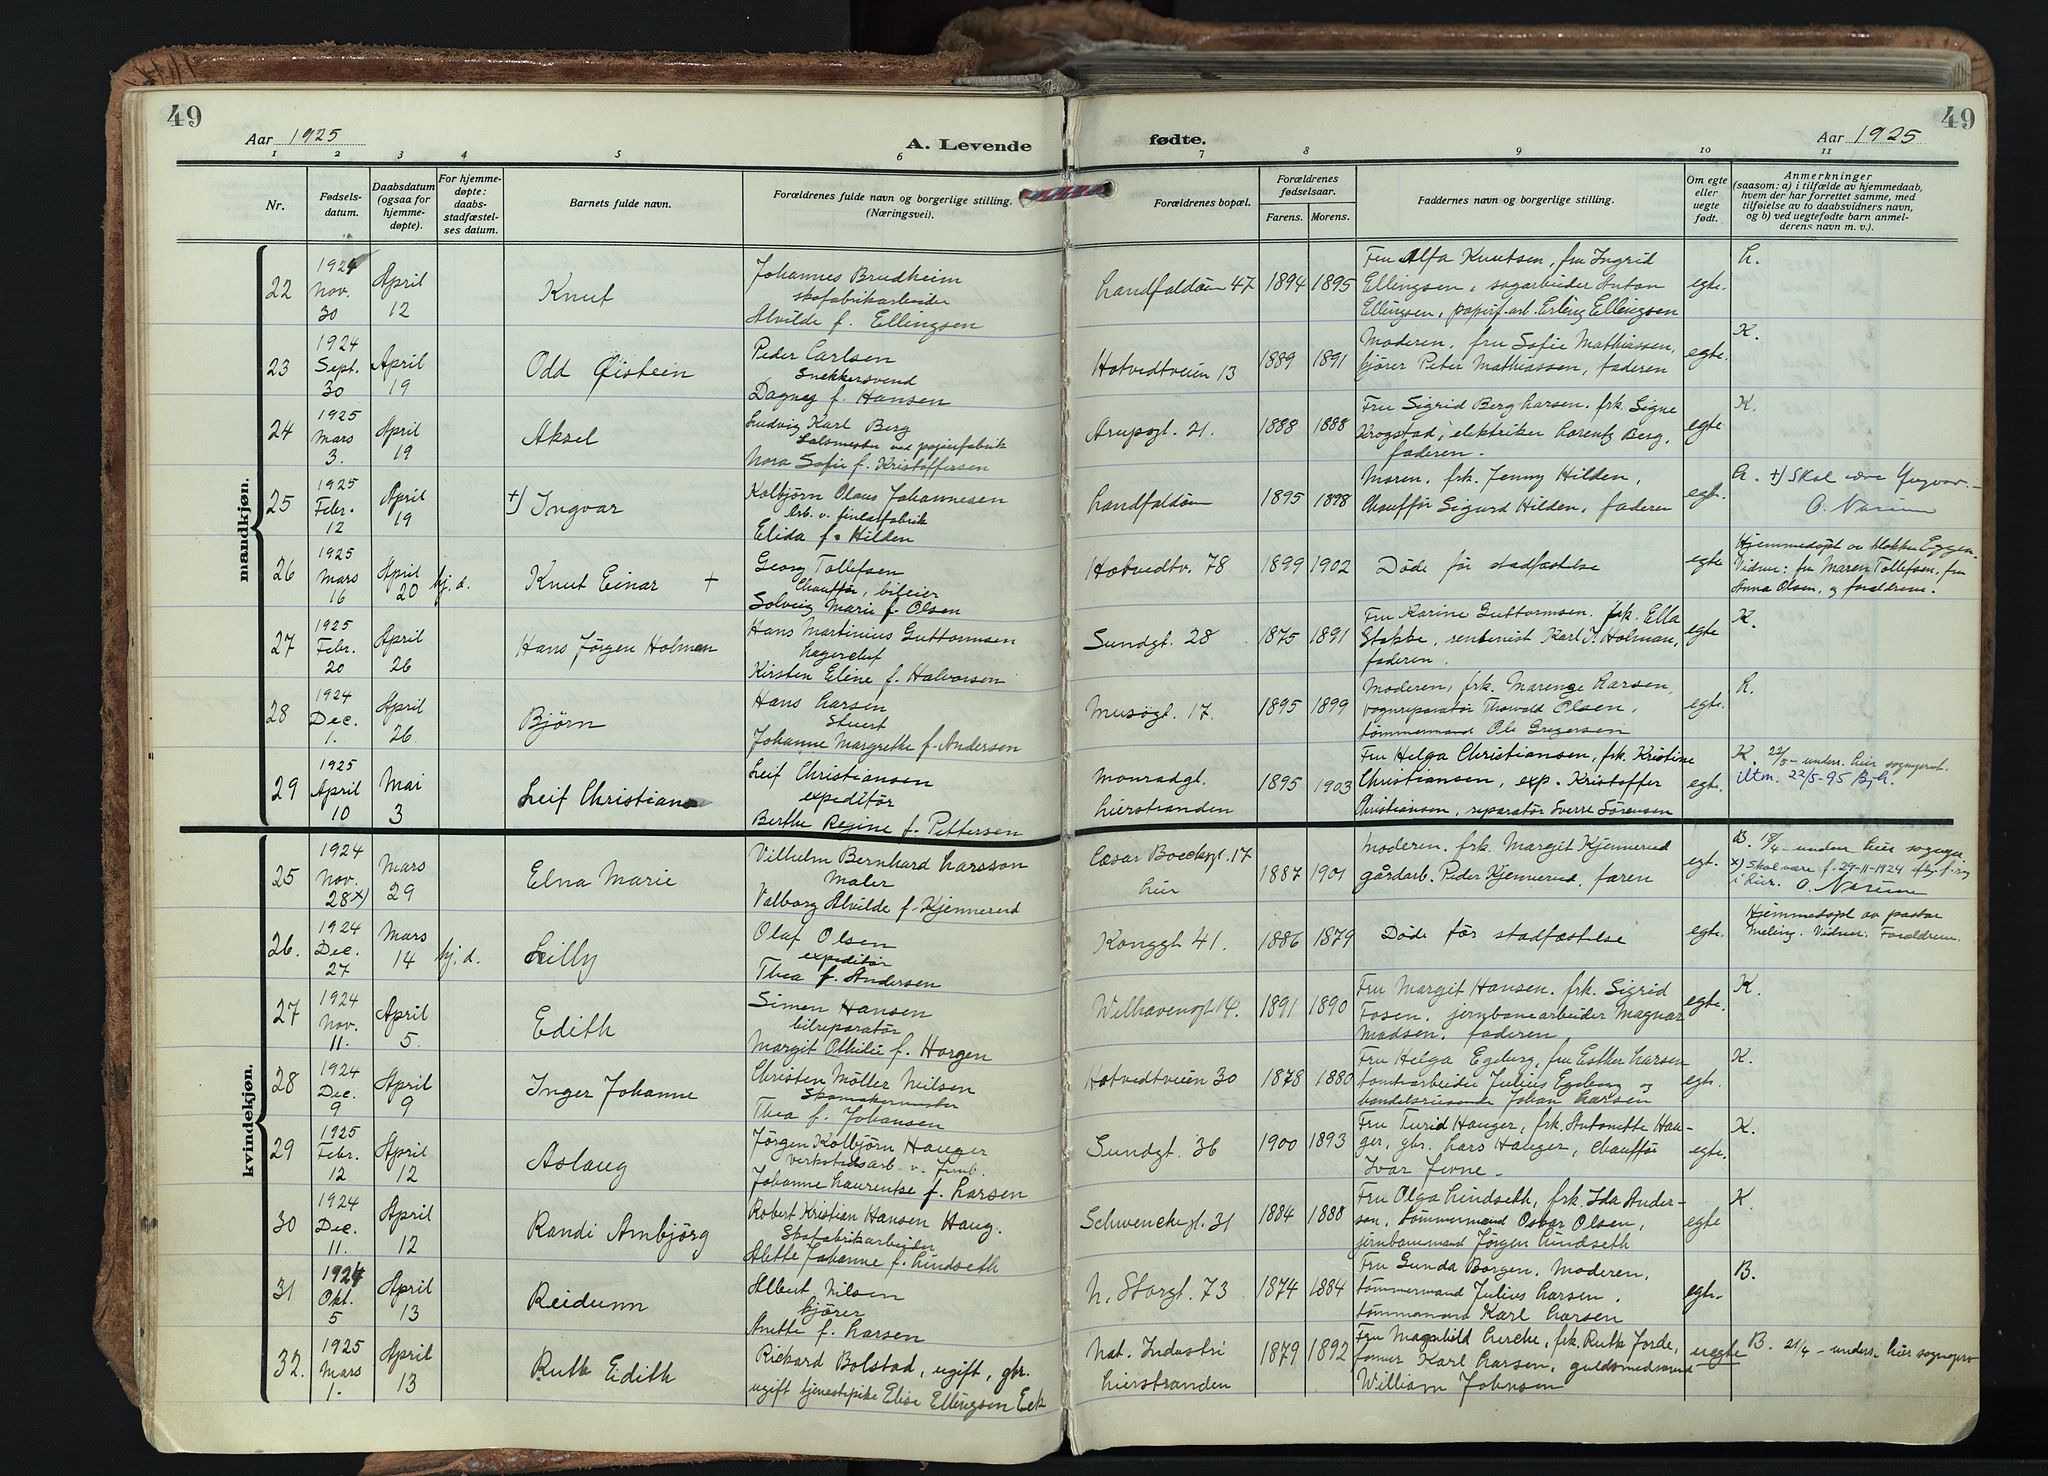 49
Aar 1925
A. Levende
fødte.
Aar 1925
49
1 2 3 4 5 6 7 8 9 10 11
Nr.
Fødsels-
datum.
Daabsdatum
(ogsaa for
hjemme-
døpte).
For hjemme-
døpte:
daabs-
stadfæstel-
ses datum.
Barnets fulde navn.
Forældrenes fulde navn og borgerlige stilling.
(Næringsvei).
Forældrenes bopæl.
Forældrenes
fødselsaar.
Farens. Morens.
Faddernes navn og borgerlig stilling.
Om egte
eller
uegte
født.
Anmerkninger
(saasom: a) i tilfælde av hjemmedaab,
hvem der har forrettet samme, med
tilføielse av to daabsvidners navn,
og b) ved uegtefødte barn anmel-
derens navn m. v.).
mandkjøn.
22
1924
Nov.
30
April
12
Knut
Johannes Brudheim
skofabrikarbeider
Alvilde f. Ellingsen
Landfaldöen 47
1894 1895
Fru Alfa Knutsen, fru Ingrid
Ellingsen, sagarbeider Anton
Ellingsen, papirf.arb. Erling Ellingsen
egte.
L.
23
1924
Sept.
30
April
19
Odd Øisteen
Peder Carlsen
Snekkersvend
Dagny f. Hansen
Hotvedtveien 13
1889 1891
Moderen, fru Sofie Mathiassen,
kjører Peter Mathiassen, faderen
egte.
K.
24
1925
Mars
3.
April
19
Aksel
Ludvig Karl Berg
Salsmester ved papirfabrik
Nora Sofie f. Kristoffersen
Arupsgt. 21.
1888 1888
Fru Sigrid Berg Larsen. frk. Signe
Krogstad, elektriker Lorentz Berg,
faderen.
egte
K.
25
1925
Febr.
12
April
19
+) Ingvar
Kolbjörn Olaus Johannesen
Arb. v. finlasfabrik
Elida f. Hilden
Landfaldöen
1895 1898
Moren, frk. Jenny Hilden,
Chauffør Sigurd Hilden, faderen
egte.
L. +) Skal være Yngvar.
O. Narum
26
1925
Mars
16
April
20
hj. d.
Knut Einar +
Georg Tollefsen
Chauffør, bileier
Solveig Marie f. Olsen
Hotvedtv. 78
1899 1902
Døde før stadfæstelse
egte
Hjemmedøpt av klokker Eggen.
Vidner: fru Maren Tollefsen, fru
Anna Olsen, og forældrene.
27
1925
Febr.
20
April
26
Hans Jörgen Holman
Hans Martinius Guttormsen
Lagerchef
Kirsten Eline f. Halvorsen
Sundgt. 28
1875 1891
Fru Karine Guttormsen. frk. Ella
Stokke, rentenist Karl J. Holman,
faderen.
egte
K.
28
1924
Dec.
1.
April
26.
Björn
Hans Larsen
Stuert
Johanne Margrethe f. Andersen
Musögt. 17.
1895 1899
Moderen, frk. Marenge Larsen,
vognreparatør Thorvald Olsen,
tömmermand Ole Gregersen
egte.
L.
29
1925
April
10
Mai
3
Leif Christian
Leif Christiansen
expeditør
Berthe Regine f. Pettersen
Monradgt.
Lierstranden
1895 1903
Fru Helga Christiansen, frk. Kristine
Christiansen, exp. Kristoffer
Christiansen, reparatør Sverre Sörensen
egte.
K. 22/5 - underr. Lier sogneprest.
iltm. 22/5-95 B.H.
kvindekjøn.
25
1924
Nov.
28 x)
Mars
29
Elna Marie
Vilhelm Bernhard Larsson
Maler
Valborg Alvilde f. Kjennerud
Cæsar Boecksgt. 17
Lier
1887 1901
Moderen. frk. Margit Kjennerud
gårdarb. Peder Kjennerud, faren
egte.
B. 18/4 - underr. Lier sognepr.
x) Skal være f. 29-11-1924
i Lier. O. Narum
26.
1924
Dec.
27
Mars
14
hj. d.
Lilly
Olaf Olsen
expeditør
Thea f. Andersen
Konggt. 41.
1886 1879
Døde før stadfæstelse
egte.
Hjemmedøpt av pastor
Meling. Vidner: Forældrene.
27
1924
Nov.
11.
April
5.
Edith
Simen Hansen
bilreparatør
Margit Othilie f. Horgen
Welhavengt 14.
1891 1890
Fru Margit Hansen. frk. Sigrid
Fosen, jernbanearbeider Magnar
Madsen, faderen
egte.
K.
28
1924
Dec.
9
April
9
Inger Johanne
Christen Möller Nilsen
Skomakermester
Thea f. Johansen
Hotvedtveien 30
1878 1880
Fru Helga Egeberg, fru Esther Larsen
tomtearbeider Julius Egeberg og
handelsreisende Johan Larsen
egte.
K.
29
1925
Febr.
12
April
12
Aslaug
Jörgen Kolbjörn Hauger
verkstedsarb. v. Jernb.
Johanne Laurentse f. Larsen
Sundgt. 36
1900 1893
Fru Turid Hauger, frk. Antonette Hau-
ger, gbr. Lars Hauger, Chauffør
Ivar Jevne -
egte.
K.
30
1924
Dec.
11.
April
12
Randi Arnbjörg
Robert Kristian Hansen Haug.
Skofabrikarbeider
Alette Johanne f. Lindseth
Schwenckegt. 31
1884 1888
Fru Olga Lindseth, frk. Ida Ander-
sen, tömmermand Oskar Olsen,
jernbanemand Jörgen Lindseth
egte
K.
31
1924
Okt.
5
April
13
Reidunn
Albert Nilsen
kjører
Anette f. Larsen
N. Storgt. 73
1874 1884
Fru Gunda Borgen. Moderen,
tömmermand Julius Larsen.
tömmermand Karl Larsen
egte.
B.
32.
1925
Mars
1.
April
13
Ruth Edith
Rickard Bolstad, ugift, gbr.
ugift tjenestepike Elise Ellingsen Eek
Nat. Industri
Lierstranden
1879 1892
Fru Magnhild Lierke, frk. Ruth Jorde,
former Karl Larsen, guldsmedsvend
William Johnsen
uegte
B. 21/4 - underr. Lier sognepr.